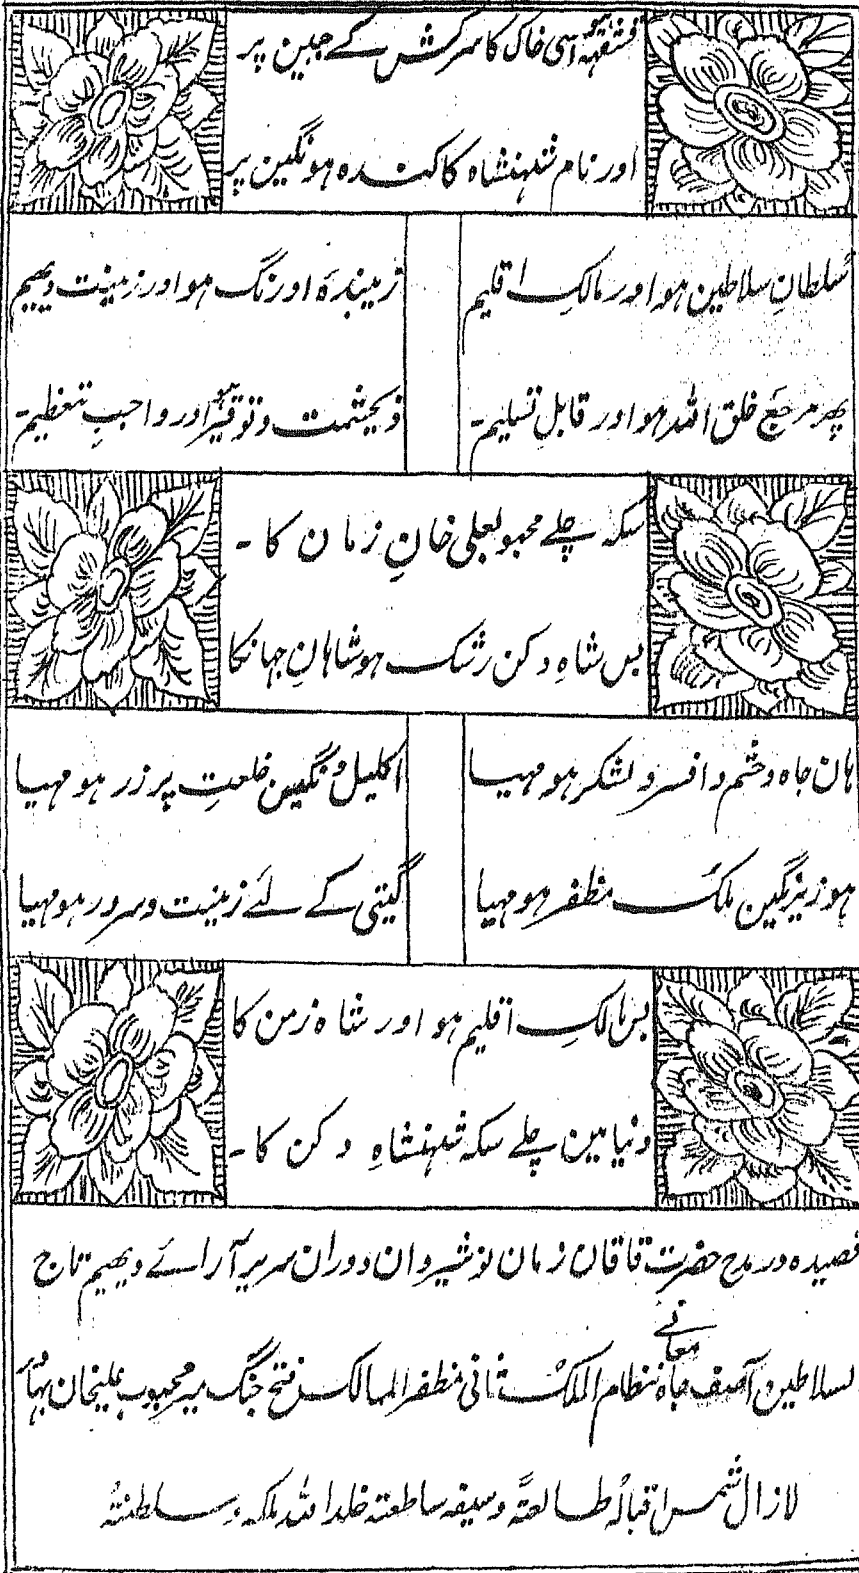 قشقہ ہو اسی خاک کا سرکش کے جبین پر
اور نام شہنشاہ کا کندہ ہو نگین پر
سلطانِ سلاطین ہو اور مالکِ اقلیم
زیبندۂ اورنگ ہو اور زینت دیہیم
پھر مرجع خلق اللہ ہو اور قابلِ تسلیم۔
ذیحشمت و توقیر ہو اور واجبِ تعظیم۔
سکہ چلے محبوبعلی خانِ زمان کا۔
بس شاہِ دکن رشک ہو شاہانِ جہانکا
ہان جاہ و حشم و افسر و لشکر ہو مہیا
اکلیل و نگین خلعتِ پر زر ہو مہیا
ہو زیر نگین ملک مظفر ہو مہیا
گیتی کے لئے زینت و سرور ہو مہیا
بس مالکِ اقلیم ہو اور شاہ زمن کا
دنیا مین چلے سکہ شہنشاہِ دکن کا۔
قصیدہ در مدح حضرت قاقان زمان نوشیروان دوران سریر آرائے دیہیم تاج
لسلاطین آصف جاہ نظام الملک ثانی مظفر الممالک فتح جنگ میر محبوب علیخان بہادر
لازال شمس اقبالہ طالعۃً وسیفہ ساطعتہ خلد اللہ ملکہ و سلطنتہ